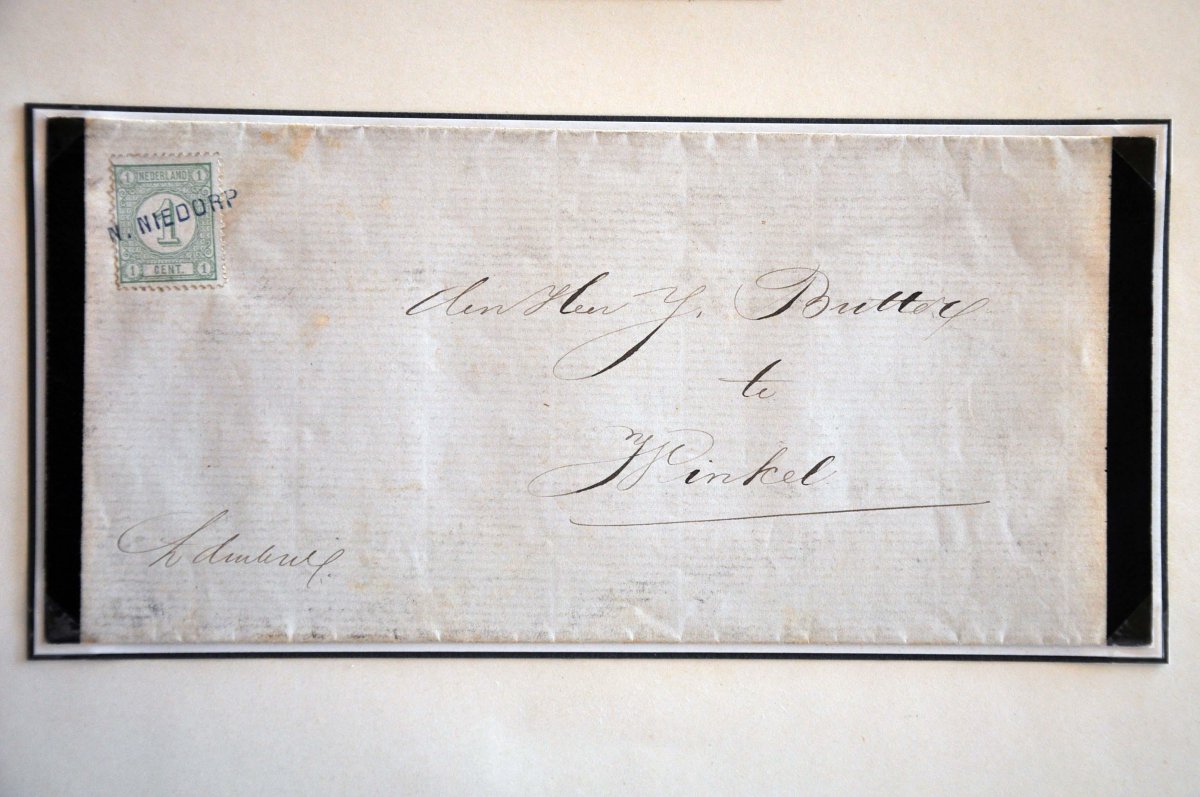 1 NEDERLAND 1
1
1 CENT. 1
N. NIEDORP
den Heer J. Butter
te
Winkel